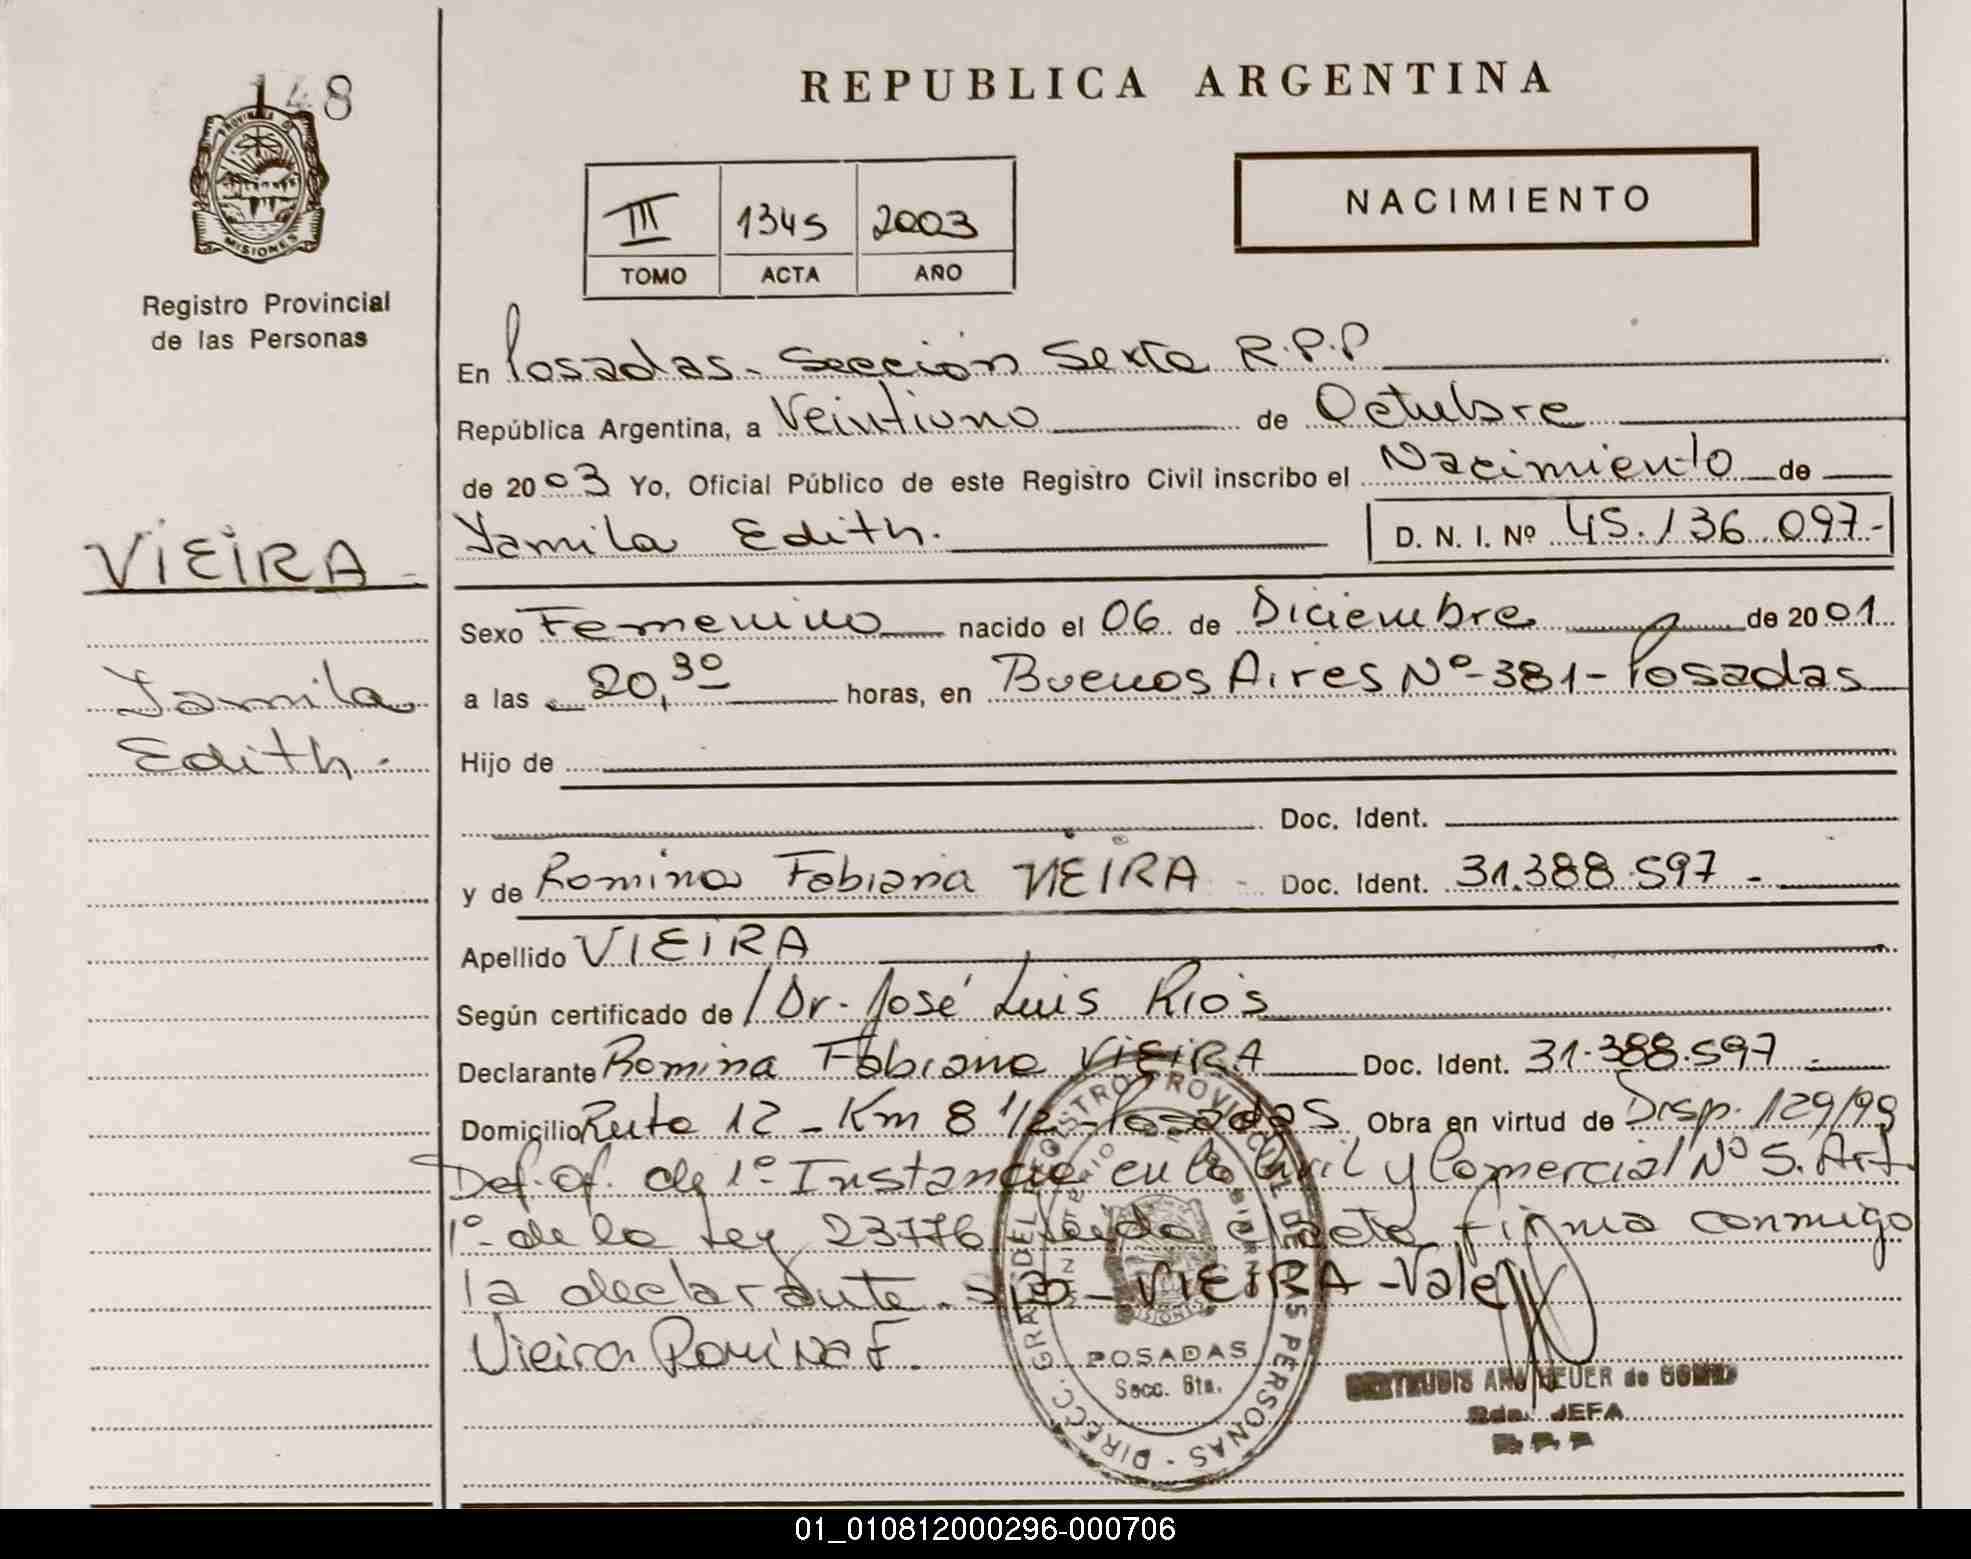 148
PROVINCIA DE
MISIONES
Registro Provincial
de las Personas
REPUBLICA ARGENTINA
NACIMIENTO
III 1345 2003
TOMO ACTA AÑO
En Posadas - Sección Sexta R.P.P
República Argentina, a Veintiuno de Octubre
de 2003 Yo, Oficial Público de este Registro Civil inscribo el Nacimiento de
Yamila Edith. D. N. I. Nº 45.136.097.-
VIEIRA -
Yamila
Edith -
Sexo Femenino nacido el 06 de Diciembre de 2001
a las 20,30 horas, en Buenos Aires Nº-381-Posadas
Hijo de
Doc. Ident.
y de Romina Fabiana VIEIRA - Doc. Ident. 31.388.597 -
Apellido VIEIRA
Según certificado de / Dr. José Luis Rios
Declarante Romina Fabiana VIEIRA Doc. Ident. 31.388.597 -
Domicilio Ruta 12 - Km 8 1/2 - Posadas Obra en virtud de Disp. 129/99
Def. of. de 1º Instancia en lo Civil y Comercial Nº 5. Art.
1º de la Ley 23776 Leída el acta firma conmigo
la declarante. - VIEIRA - Vale
Vieira Romina F.
DIRECC. GRAL. DEL REGISTRO PROVINCIAL DE LAS PERSONAS
POSADAS
Secc. 6ta.
GERTRUDIS ANA HEUER de GOMEZ
JEFA
01_010812000296-000706